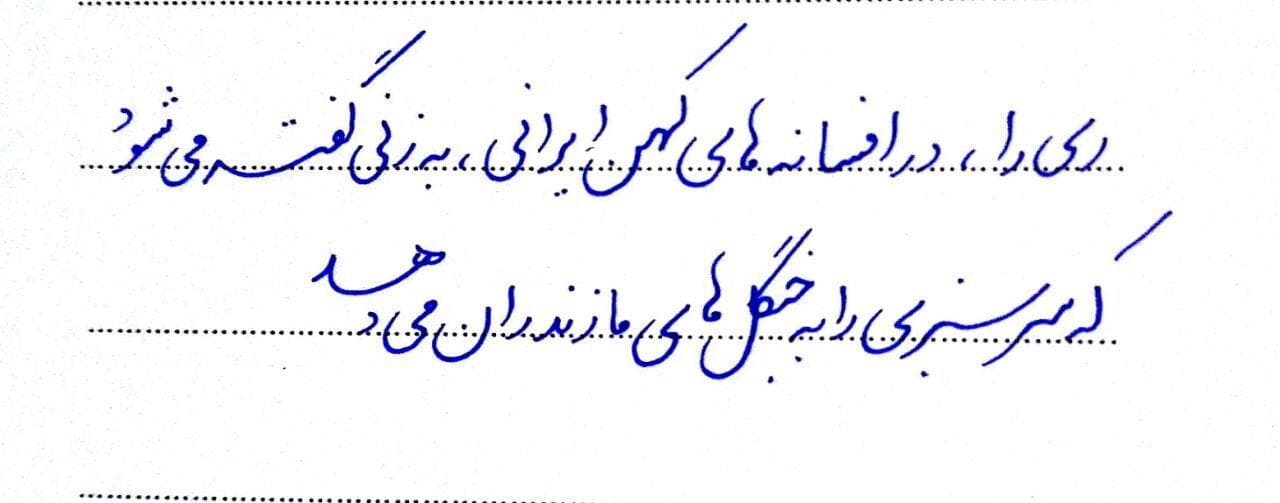 ری را، در افسانه های کهن ایرانی، به زنی گفته می شود
که سرسبزی را به جنگل های مازندران می دهد